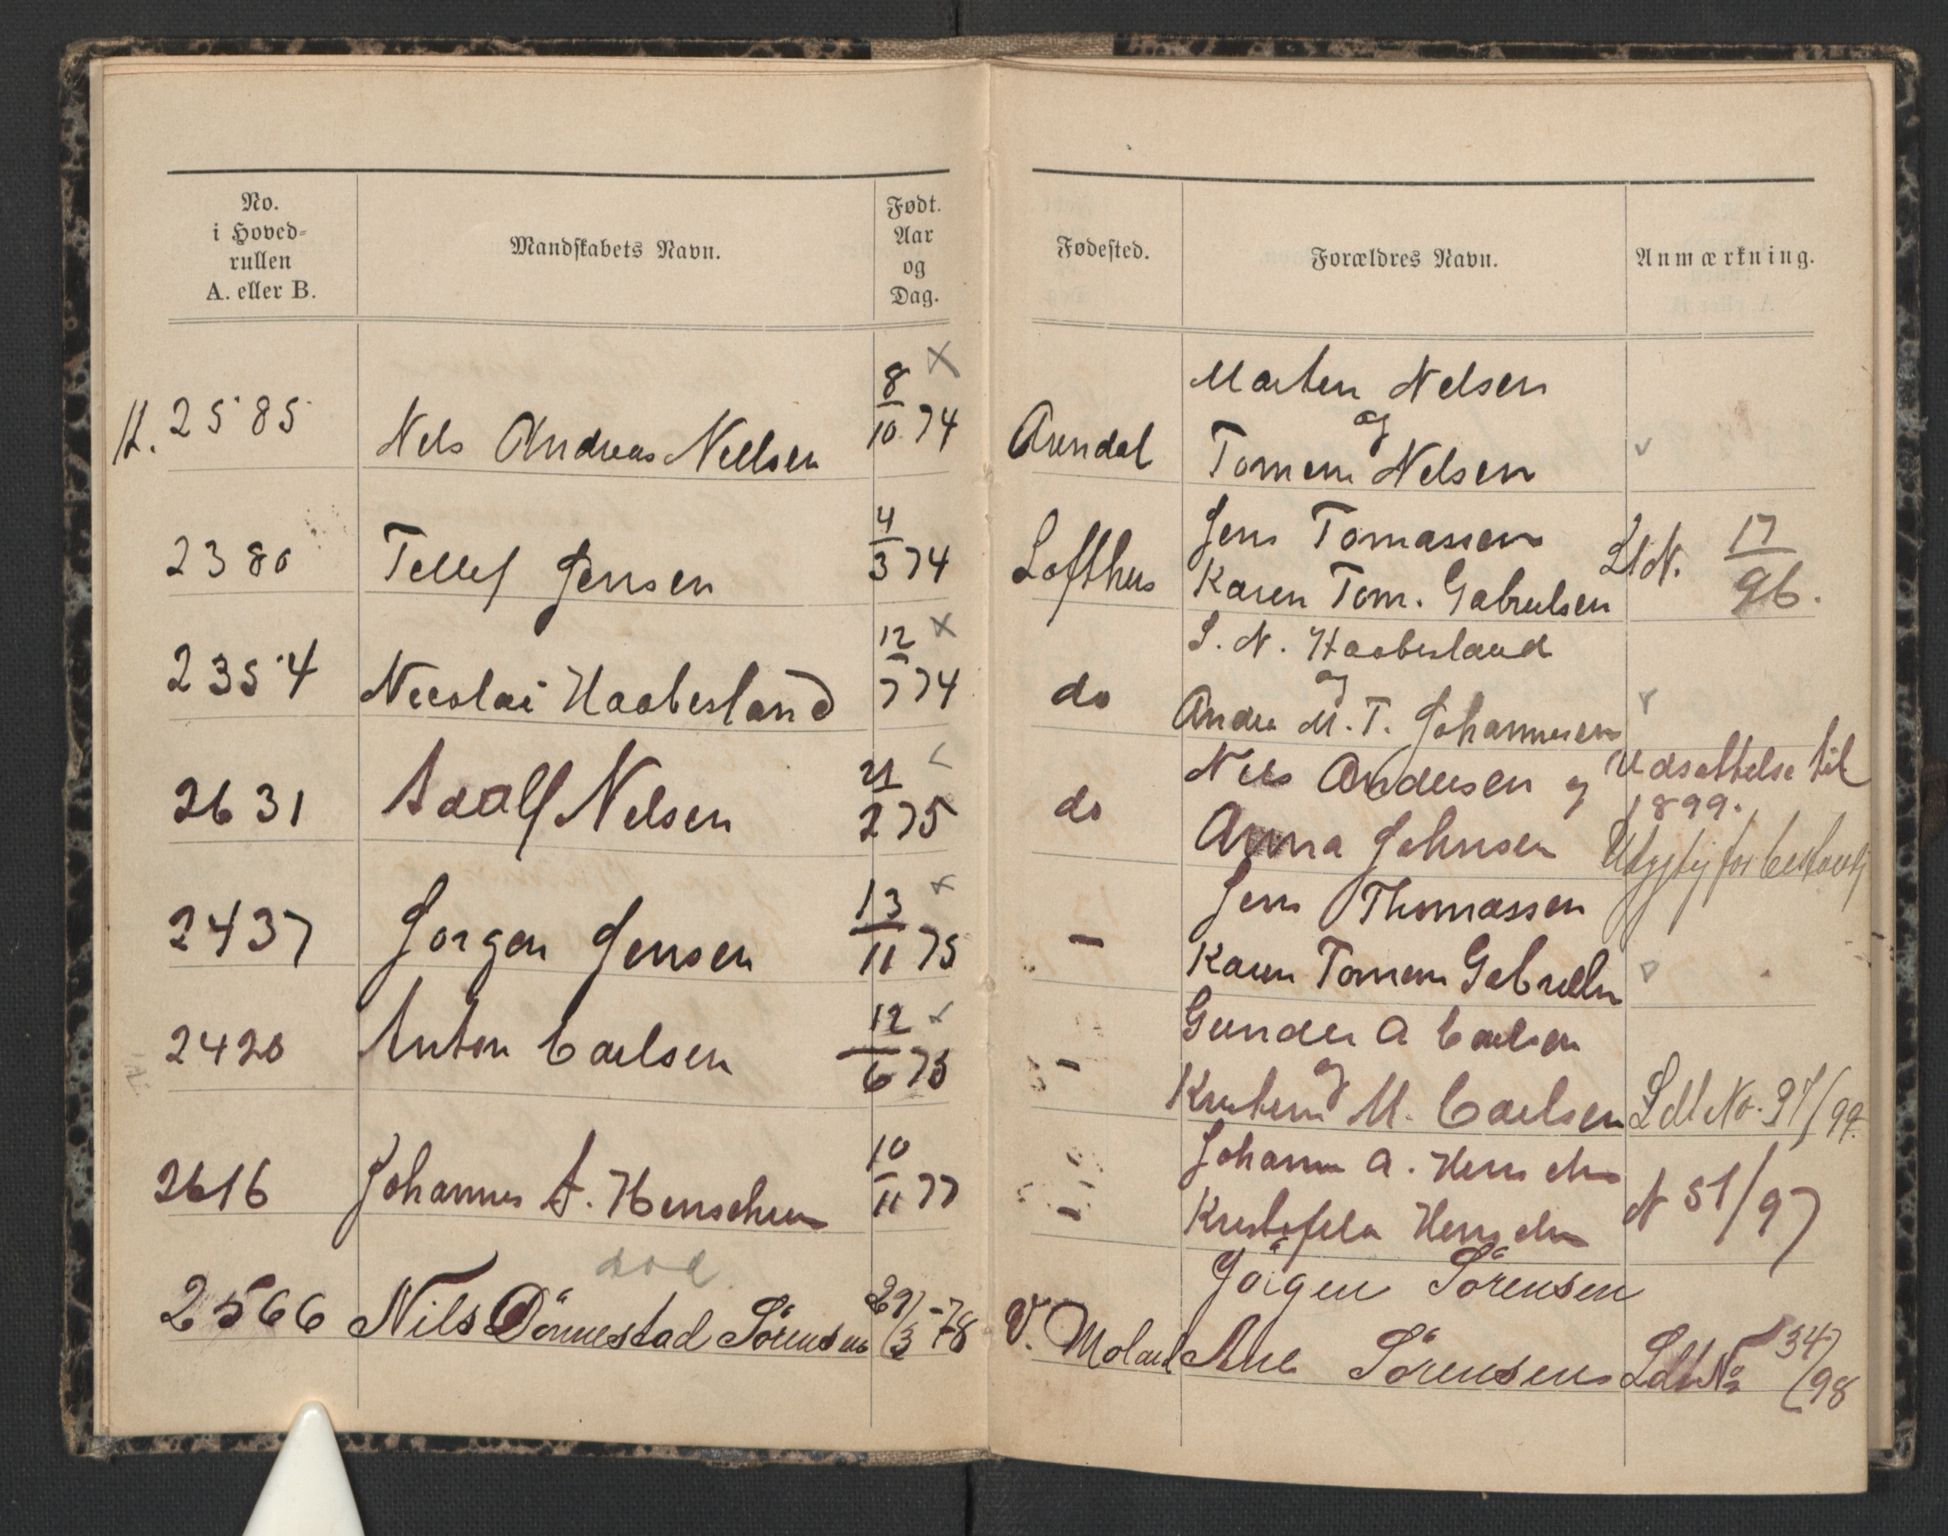 No.
i Hoved-
rullen
A. eller B.
Mandskabets Navn.
Født.
Aar
og
Dag.
Fødested.
Forældres Navn.
Anmærkning.
A. 2585 Nils Andreas Nielsen 8/10 74 × Arendal Marten Nelsen
og
Tomem Nelsen
2380 Tellef Jensen 4/3 74 Lofthus Jens Tomassen
Karen Tom. Gabrielsen LdN. 17/96.
2354 Nicolai Haabesland 12/7 74 × do S. N. Haabesland
og
Andrea M. T. Johannesen
2631 Adolf Nelsen 21/2 75 do Nils Andersen og
Anna Johnsen
Udsættelse til
1899.
2437 Jørgen Jensen 13/11 75 × — Jens Thomassen
Karen Tomem Gabrielsn
2420 Anton Carlsen 12/6 75 × — Gunder A Carlsen
og
M. Carlsen Ldt No. 97/99.
2616 Johannes A. Henschien 10/11 77 — Johan A. Henschen
Kristofela Henschen N 51/97
død
2566 Nils Dønnestad Sørensen 29/3 -78 V. Moland Jörgen Sörensen
Ane Sörensen Ldt No 34/98